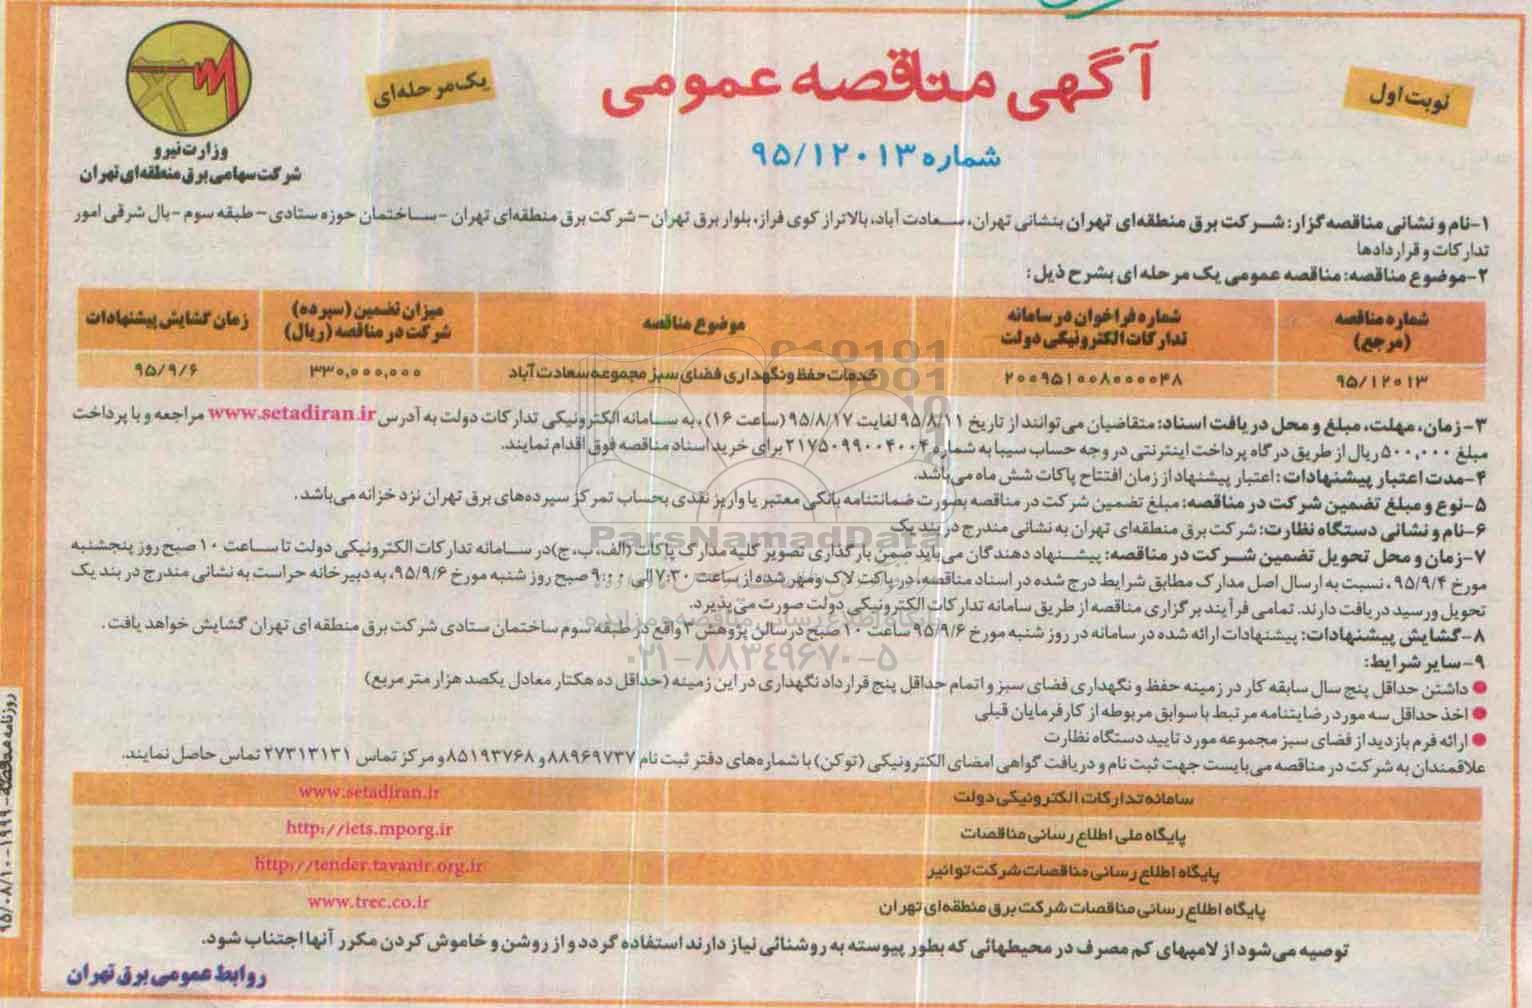 نوبت اول
آگهی مناقصه عمومی
یک مرحله‌ای
شماره ۹۵/۱۲۰۱۳
وزارت نیرو
شرکت سهامی برق منطقه‌ای تهران
۱-نام و نشانی مناقصه گزار: شرکت برق منطقه‌ای تهران بنشانی تهران، سعادت آباد، بالاتر از کوی فراز، بلوار برق تهران - شرکت برق منطقه‌ای تهران - ساختمان حوزه ستادی - طبقه سوم - بال شرقی امور
تدارکات و قراردادها
۲-موضوع مناقصه: مناقصه عمومی یک مرحله ای بشرح ذیل:
شماره مناقصه (مرجع) شماره فراخوان در سامانه تدارکات الکترونیکی دولت موضوع مناقصه میزان تضمین (سپرده) شرکت در مناقصه (ریال) زمان گشایش پیشنهادات
۹۵/۱۲۰۱۳ ۲۰۰۹۵۱۰۰۸۰۰۰۰۴۸ خدمات حفظ و نگهداری فضای سبز مجموعه سعادت آباد ۳۳۰,۰۰۰,۰۰۰ ۹۵/۹/۶
۳-زمان، مهلت، مبلغ و محل دریافت اسناد: متقاضیان می‌توانند از تاریخ ۹۵/۸/۱۱ لغایت ۹۵/۸/۱۷ (ساعت ۱۶)، به سامانه الکترونیکی تدارکات دولت به آدرس www.setadiran.ir مراجعه و با پرداخت
مبلغ ۵۰۰,۰۰۰ ریال از طریق درگاه پرداخت اینترنتی در وجه حساب سیبا به شماره ۲۱۷۵۰۹۹۰۰۴۰۰۴ برای خرید اسناد مناقصه فوق اقدام نمایند.
۴-مدت اعتبار پیشنهادات: اعتبار پیشنهاد از زمان افتتاح پاکات شش ماه می‌باشد.
۵-نوع و مبلغ تضمین شرکت در مناقصه: مبلغ تضمین شرکت در مناقصه بصورت ضمانتنامه بانکی معتبر یا واریز نقدی بحساب تمرکز سپرده‌های برق تهران نزد خزانه می‌باشد.
۶-نام و نشانی دستگاه نظارت: شرکت برق منطقه‌ای تهران به نشانی مندرج در بند یک
۷-زمان و محل تحویل تضمین شرکت در مناقصه: پیشنهاد دهندگان می‌باید ضمن بارگذاری تصویر کلیه مدارک پاکات (الف، ب، ج) در سامانه تدارکات الکترونیکی دولت تا ساعت ۱۰ صبح روز پنجشنبه
مورخ ۹۵/۹/۴، نسبت به ارسال اصل مدارک مطابق شرایط درج شده در اسناد مناقصه، در پاکت لاک و مهر شده از ساعت ۷:۳۰ الی ۹:۰۰ صبح روز شنبه مورخ ۹۵/۹/۶، به دبیرخانه حراست به نشانی مندرج در بند یک
تحویل و رسید دریافت دارند. تمامی فرآیند برگزاری مناقصه از طریق سامانه تدارکات الکترونیکی دولت صورت می‌پذیرد.
۸-گشایش پیشنهادات: پیشنهادات ارائه شده در سامانه در روز شنبه مورخ ۹۵/۹/۶ ساعت ۱۰ صبح در سالن پژوهش ۲ واقع در طبقه سوم ساختمان ستادی شرکت برق منطقه ای تهران گشایش خواهد یافت.
۹-سایر شرایط:
● داشتن حداقل پنج سال سابقه کار در زمینه حفظ و نگهداری فضای سبز و اتمام حداقل پنج قرارداد نگهداری در این زمینه (حداقل ده هکتار معادل یکصد هزار متر مربع)
● اخذ حداقل سه مورد رضایتنامه مرتبط با سوابق مربوطه از کارفرمایان قبلی
● ارائه فرم بازدید از فضای سبز مجموعه مورد تایید دستگاه نظارت
علاقمندان به شرکت در مناقصه می‌بایست جهت ثبت نام و دریافت گواهی امضای الکترونیکی (توکن) با شماره‌های دفتر ثبت نام ۸۸۹۶۹۷۳۷ و ۸۵۱۹۳۷۶۸ و مرکز تماس ۲۷۳۱۳۱۳۱ تماس حاصل نمایند.
سامانه تدارکات الکترونیکی دولت www.setadiran.ir
پایگاه ملی اطلاع رسانی مناقصات http://iets.mporg.ir
پایگاه اطلاع رسانی مناقصات شرکت توانیر http://tender.tavanir.org.ir
پایگاه اطلاع رسانی مناقصات شرکت برق منطقه‌ای تهران www.trec.co.ir
توصیه می‌شود از لامپهای کم مصرف در محیطهائی که بطور پیوسته به روشنائی نیاز دارند استفاده گردد و از روشن و خاموش کردن مکرر آنها اجتناب شود.
روابط عمومی برق تهران
ParsNamadData
۰۲۱-۸۸۳۴۹۶۷۰-۵